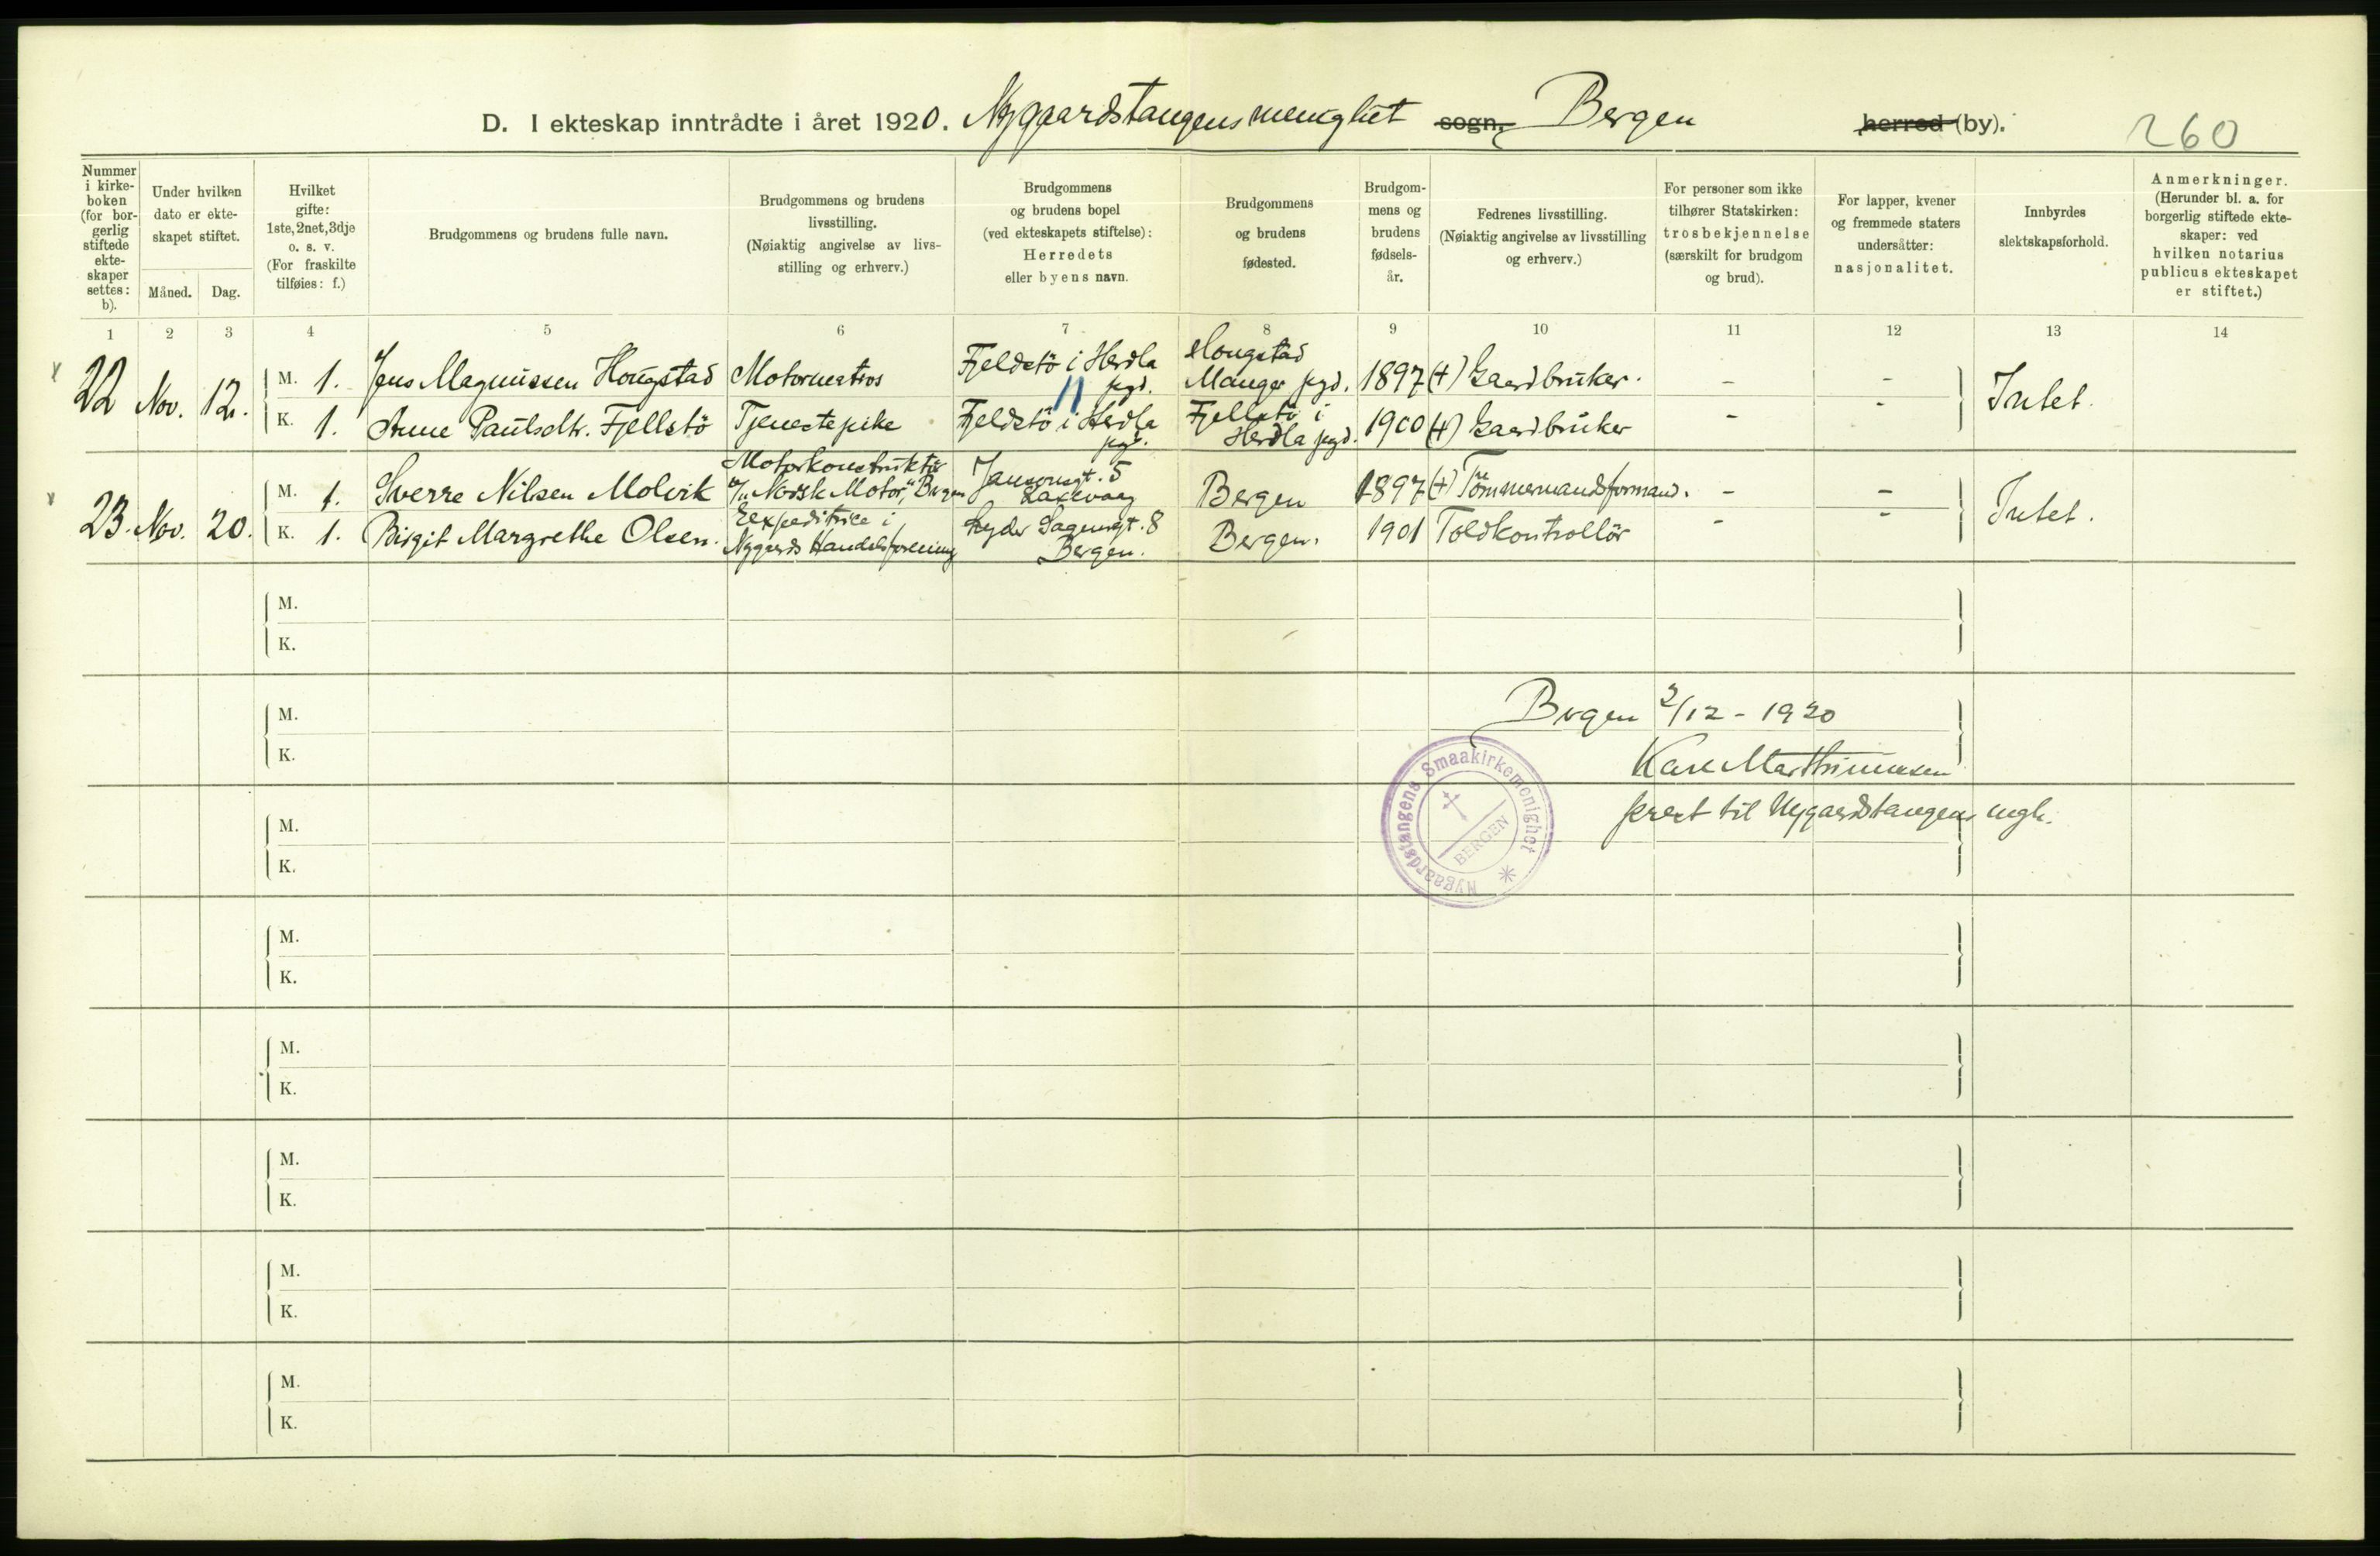 D. I ekteskap inntrådte i året 1920. Nygaardstangens menighet sogn, Bergen herred (by). 260
Nummer i kirkeboken (for borgerlig stiftede ekteskaper settes: b).
Under hvilken dato er ekteskapet stiftet.
Måned. Dag.
Hvilket gifte: 1ste, 2net, 3dje o. s. v. (For fraskilte tilføies: f.)
Brudgommens og brudens fulle navn.
Brudgommens og brudens livsstilling. (Nøiaktig angivelse av livsstilling og erhverv.)
Brudgommens og brudens bopel (ved ekteskapets stiftelse): Herredets eller byens navn.
Brudgommens og brudens fødested.
Brudgommens og brudens fødselsår.
Fedrenes livsstilling. (Nøiaktig angivelse av livsstilling og erhverv.)
For personer som ikke tilhører Statskirken: trosbekjennelse (særskilt for brudgom og brud).
For lapper, kvener og fremmede staters undersåtter: nasjonalitet.
Innbyrdes slektskapsforhold.
Anmerkninger. (Herunder bl. a. for borgerlig stiftede ekteskaper: ved hvilken notarius publicus ekteskapet er stiftet.)
1 2 3 4 5 6 7 8 9 10 11 12 13 14
22 Nov. 12. M. 1. Jens Magnussen Hougstad Motormatros Fjeldstö i Herdla pgd. Hougstad Manger pgd. 1897 (+) Gaardbruker. - - Intet.
K. 1. Anne Paulsdtr. Fjellstö Tjenestepike Fjeldstö i Herdla pgd. Fjellstö i Herdla pgd. 1900 (+) Gaardbruker - -
23. Nov. 20. M. 1. Sverre Nilsen Molvik Motorkonstruktör "Norsk Motor", Bergen Jansonsgt. 5 Laxevaag Bergen 1897 (+) Tömmermandsformand. - - Intet.
K. 1. Birgit Margrethe Olsen. Expeditrice i Nygaards Handelsforening Lyder Sagensgt. 8 Bergen. Bergen. 1901 Toldkontrollör - -
M.
K.
M.
K.
Bergen 2/12 - 1920
Karl Marthinussen
prest til Nygaardstangens mgh.
Nygaardstangens Smaakirkemenighet
BERGEN
M.
K.
M.
K.
M.
K.
M.
K.
M.
K.
M.
K.